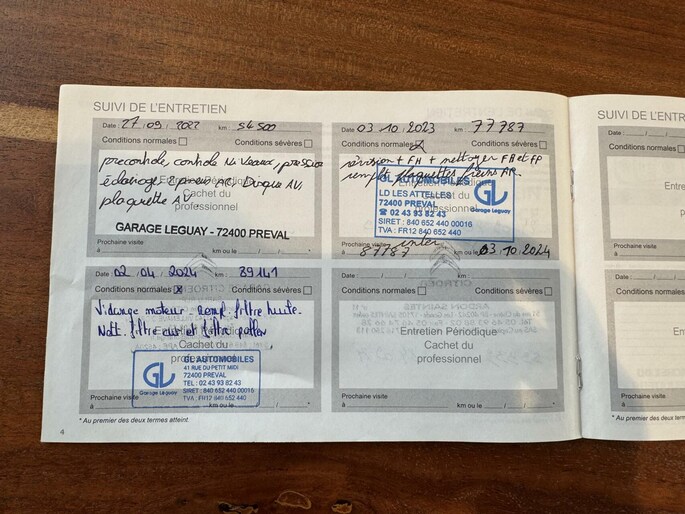 SUIVI DE L'ENTRETIEN
Date : 27/09/2022 km : 54500
Conditions normales Conditions sévères :
precontrole, controle Niveaux, pression
éclairage, 2 pneus AR, Disque AV,
plaquette AV.
Entretien Périodique
Cachet du
professionnel
GARAGE LEGUAY - 72400 PREVAL
Prochaine visite
à km ou le : / /
Date : 03 10 2023 km : 77787
Conditions normales Conditions sévères
révision + FH + nettoyer FA et FP
rempl plaquettes freins AR.
GL AUTOMOBILES
LD LES ATTELLES
72400 PREVAL
☎ 02 43 93 82 43
SIRET : 840 652 440 00016
TVA : FR12 840 652 440
GL
Garage Leguay
Prochaine visite
à 87787 km ou le : 03.10.2024
Date : 02/04/2024 km : 89141
Conditions normales Conditions sévères
Vidange moteur rempl. filtre huile.
Nett. filtre air et filtre pollen
GL AUTOMOBILES
41 RUE DU PETIT MIDI
72400 PREVAL
TEL : 02 43 93 82 43
SIRET : 840 652 440 00016
TVA : FR12 840 652 440
GL
Garage Leguay
Prochaine visite
à km ou le : / /
Date : / / km :
Conditions normales Conditions sévères
Entretien Périodique
Cachet du
professionnel
Prochaine visite
à km ou le : / /
* Au premier des deux termes atteint.
* Au premier des deux
4
SUIVI DE L'ENTRE
Date : / /
Conditions normales
Prochaine visite
à
Date : / /
Conditions normales
Prochaine visite
à